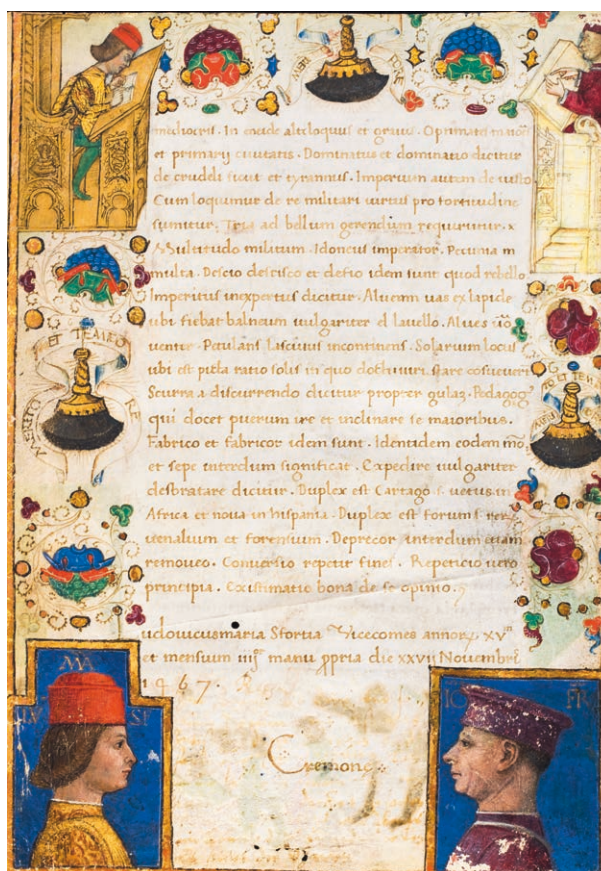 MERI TORE
mediocris. In encide alte loquus et gravis. Optimates maior
et primarij civitatis. Dominatus et dominatio dicitur
de cruddi sicut et tyrannus. Imperium autem de iusto
Cum loquimur de re militari virtus pro fortitudine
sumitur. Tria ad bellum gerendum requiruntur. x
Multitudo militum. Idoneus imperator. Pecunia m
multa. Descio descisco et defio idem sunt quod rebello
Imperitus inexpertus dicitur. Alveum vas ex lapide
ubi fiebat balneum vulgariter el lavello. Alves
venter. Petulans lascivus incontinens. Solarium locus
ubi est picta ratio solis in quo
Scurra a discurrendo dicitur propter gulam. Pedagog
qui docet puerum ire et inclinare se maioribus.
Fabrico et fabricor idem sunt. Identidem eodem mo
et sepe interdum significat. Expedire vulgariter
desbratare dicitur. Duplex est Cartago s. vetus in
Africa et nova in hispania. Duplex est Forum s.
venalium et forensium. Deprecor interdum etiam
removeo. Conversio repetit fines. Repeticio vero
principia. Existimatio bona de se opinio.
udovicusmaria Sfortia Vicecomes annorum xv
et mensuum iiij manu ppria die xxvii Novembris
1467.
Cremone
ET TEMPO
MERITO RE
MA
LV SF
IO FR